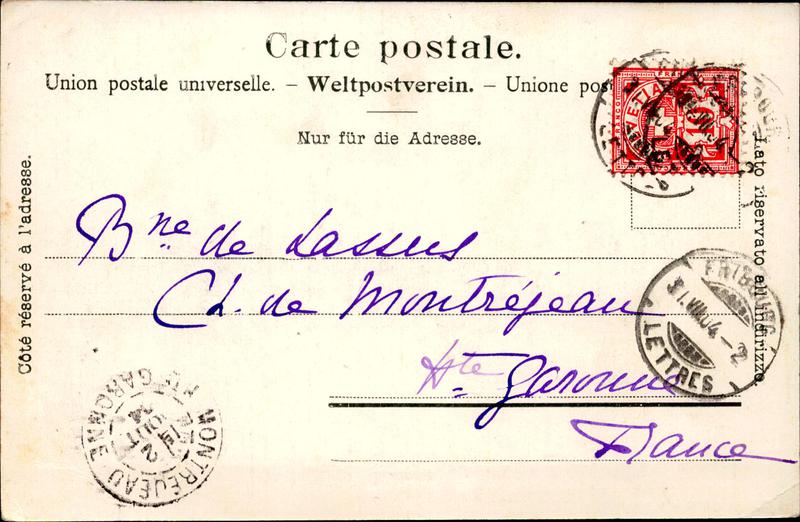 Carte postale.
Union postale universelle. – Weltpostverein. – Unione pos
Nur für die Adresse.
Côté réservé à l'adresse.
Lato riservato all'indirizzo
FRANCO
10
Bne de Lassus
Ch. de Montréjeau
Hte Garonne
France
FRIBOURG
31.VIII.04-2
LETTRES
MONTRÉJEAU
HTE GARONNE